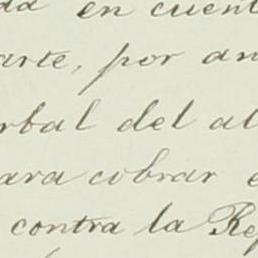 da en cuent
arte, por an
rbal del al
ara cobrar e
contra la Rep